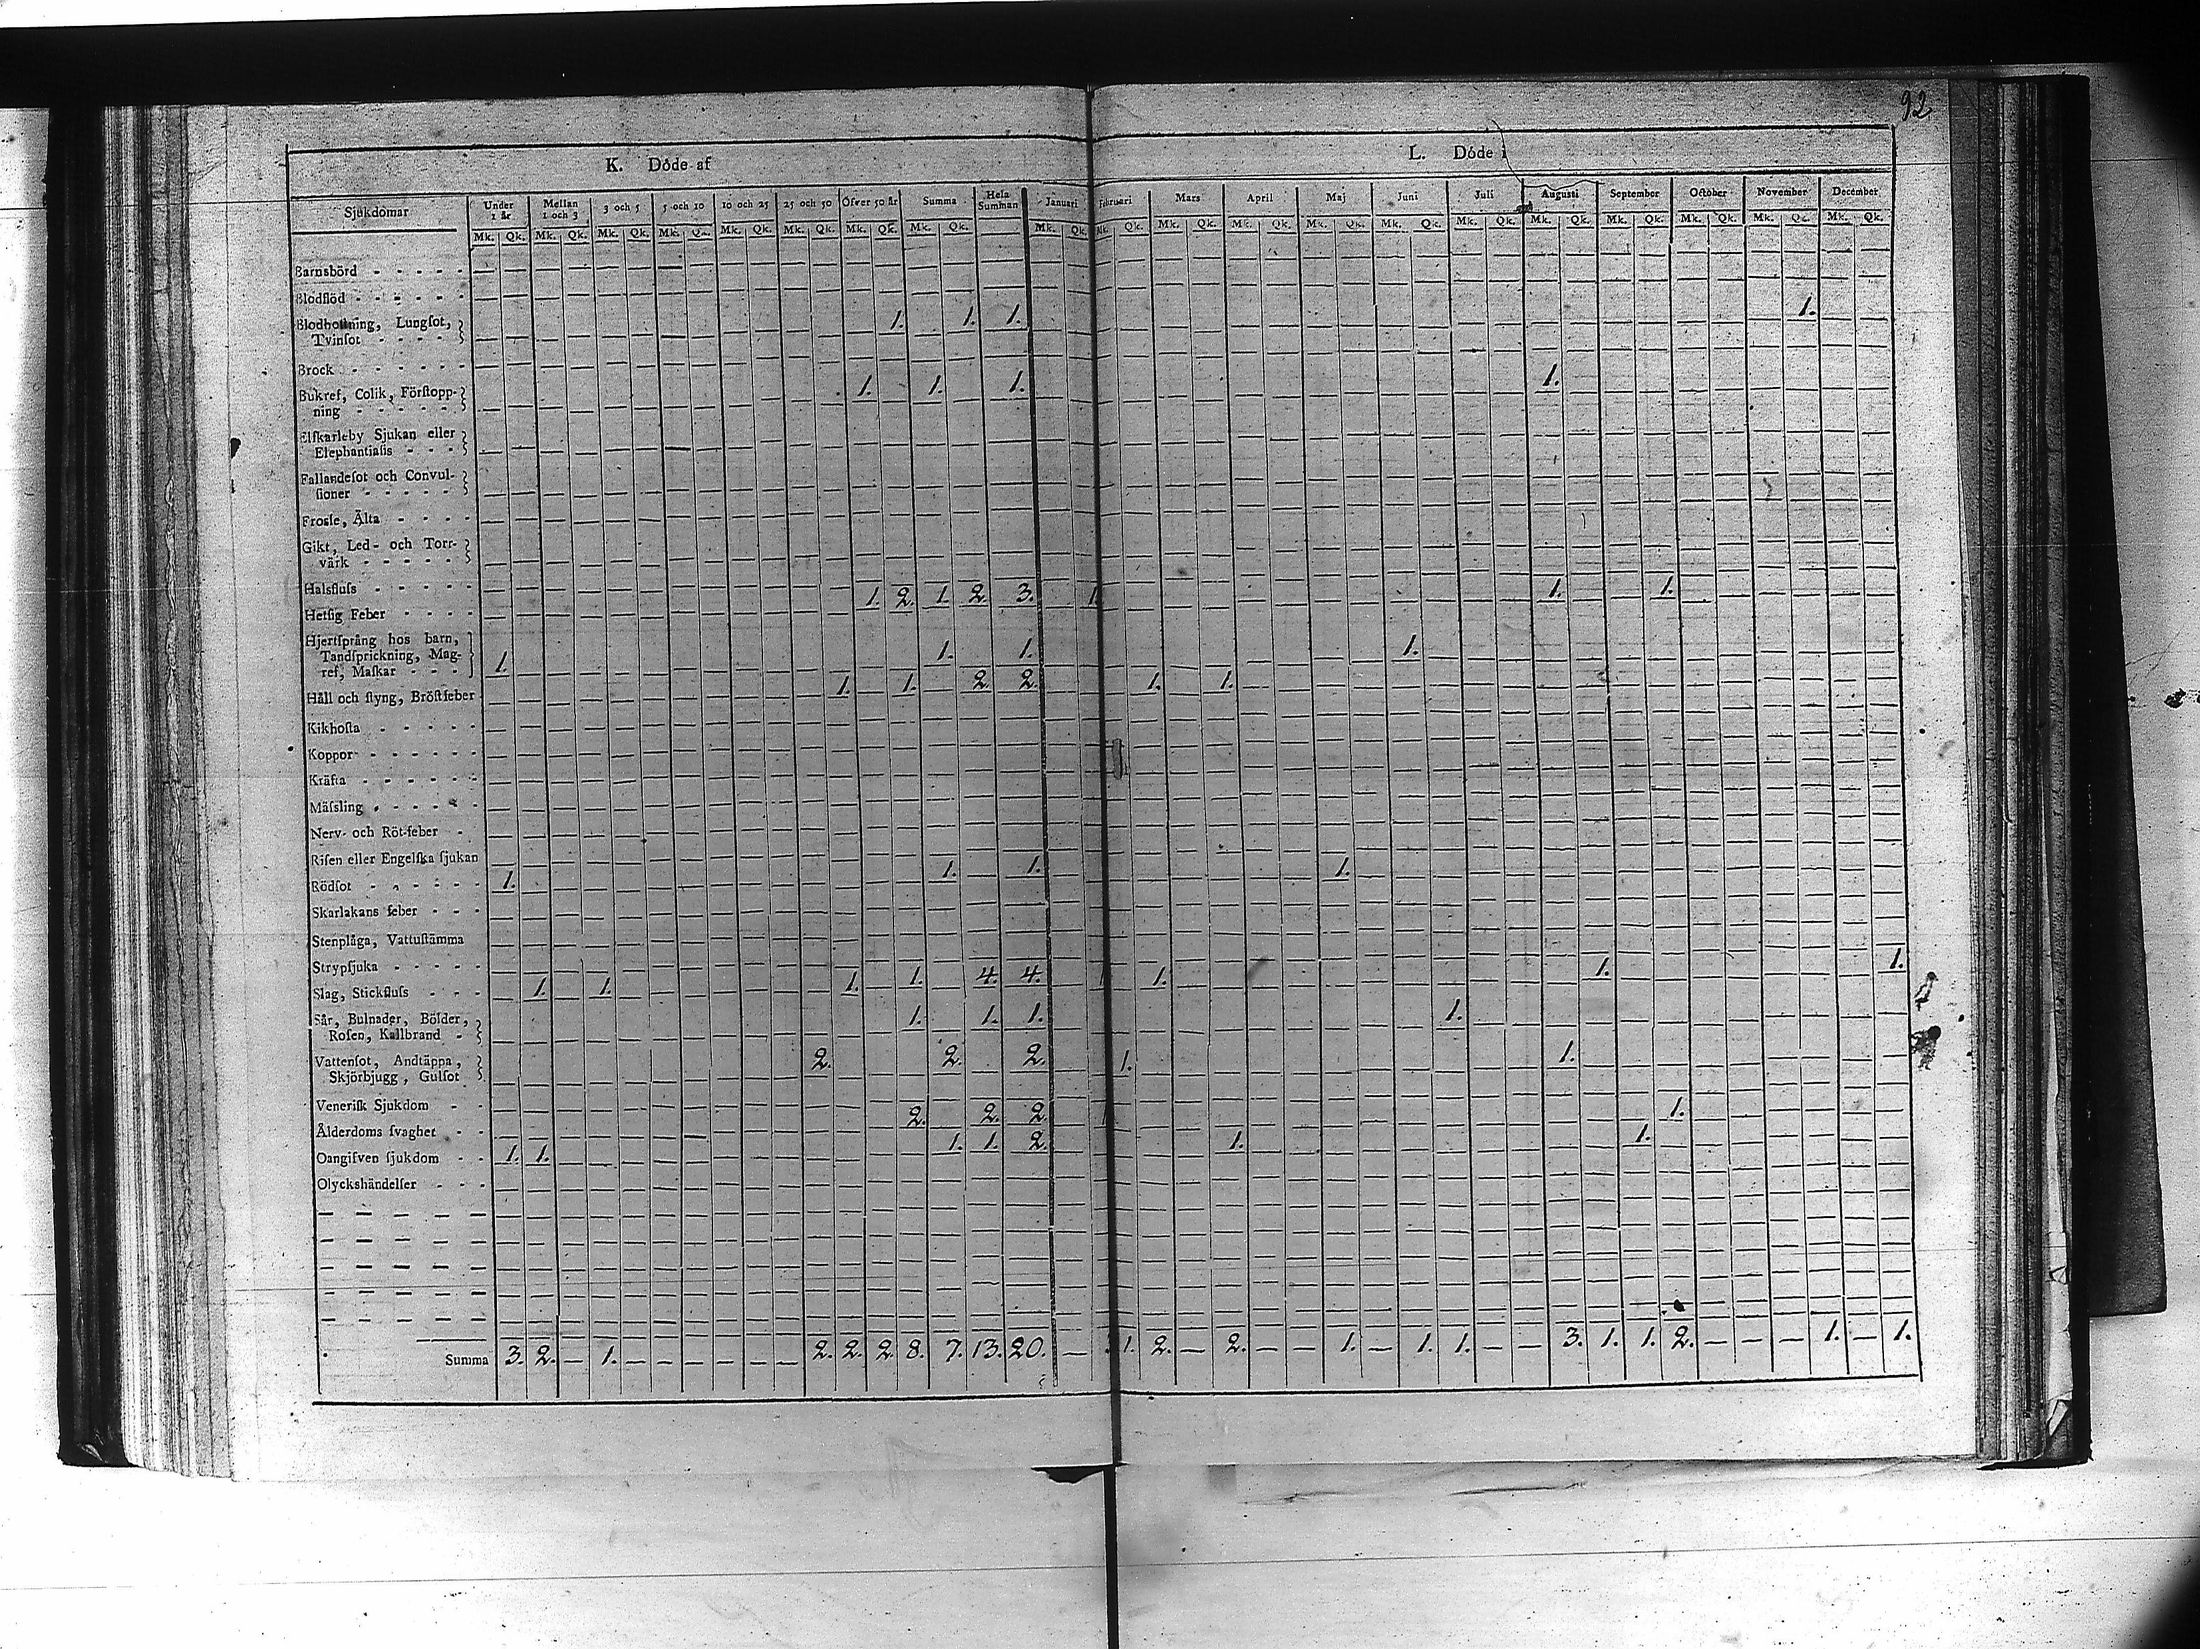 92
K. Döde af
L. Döde i
Sjukdomar Under 1 år Mellan 1 och 3 3 och 5 5 och 10 10 och 25 25 och 50 Öfver 50 år Summa Hela Summan Januari Februari Mars April Maj Juni Juli Augusti September October November December
Mk. Qk. Mk. Qk. Mk. Qk. Mk. Qk. Mk. Qk. Mk. Qk. Mk. Qk. Mk. Qk. Mk. Qk. Mk. Qk. Mk. Qk. Mk. Qk. Mk. Qk. Mk. Qk. Mk. Qk. Mk. Qk. Mk. Qk. Mk. Qk. Mk. Qk. Mk. Qk.
Barnsbörd
Blodflöd
Blodhoſtning, Lungſot, 1. 1. 1. 1.
Tvinſot
Brock
Bukref, Colik, Förſtopp- 1. 1. 1. 1.
ning
Elſkarleby Sjukan eller
Elephantiaſis
Fallandeſot och Convul-
ſioner
Frosſe, Älta
Gikt, Led- och Torr-
värk
Halsfluſs 1. 2. 1. 2. 3. 1. 1. 1.
Hetſig Feber
Hjertſprång hos barn,
Tandſprickning, Mag- 1. 1. 1. 1.
ref, Maſkar
Håll och ſtyng, Bröſtfeber 1. 1. 2. 2. 1. 1.
Kikhoſta
Koppor
Kräfta
Mäſsling
Nerv- och Röt-feber
Riſen eller Engelſka ſjukan
Rödſot 1. 1. 1. 1.
Skarlakans feber
Stenplåga, Vattuſtämma
Strypſjuka
Slag, Stickfluſs 1. 1. 1. 1. 4. 4. 1. 1. 1.
Sår, Bulnader, Bölder, 1. 1. 1. 1.
Roſen, Kallbrand
Vattenſot, Andtäppa, 2. 2. 2. 1. 1.
Skjörbjugg, Gulſot
Veneriſk Sjukdom
Ålderdoms ſvaghet 2. 2. 2. 1.
Oangifven ſjukdom 1. 1. 1. 1. 2. 1. 1.
Olyckshändelſer
Summa 3. 2. — 1. — — — — — — 2. 2. 2. 8. 7. 13. 20. — 1. 2. — 2. — — 1. — 1. 1. — — 3. 1. 1. 2. — — — 1. — 1.